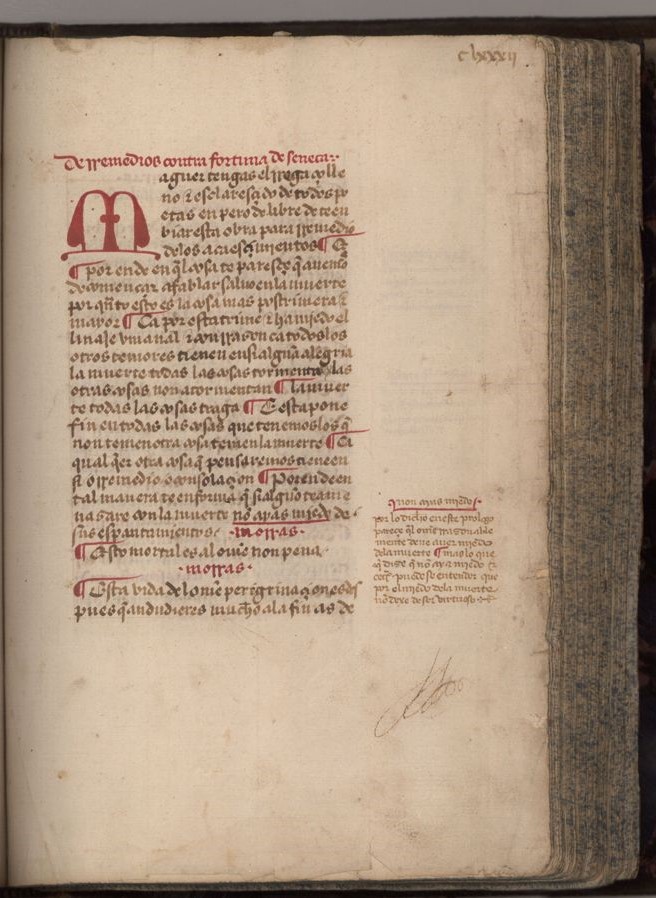 clxxxii
De rremedios contra fortuna de seneca
aguer tengas el
no & esclaresçido de todos po
etas en pero de libre de teen
biar esta obra para rremedio
de los acaesçimientos ¶ E
¶ por ende en q̃l cosa te paresçe q̃ auemos
de començar a fablar saluo en la muerte
por qñto esto es la cosa mas postrimera &
mayor ¶ Ca por esta trime & ha miedo el
linaje vmanal & con rrason ca todos los
otros temores tienen en si algũa alegria
la muerte todas las cosas tormenta las
otras cosas non atormentan ¶ la muer
te todas las cosas traga ¶ E esta pone
fin en todas las cosas que tenemos los q̃
non temen otra cosa temen la muerte ¶ Ca
qual q̃er otra cosa q̃ pensaremos tiene en
si o rremedio o consolaçon ¶ Por ende en
tal manera te enforma q̃ si alguo te ame
nasare con la muerte nõ ayas miedo de
sus espantamientos · morras ·
¶ Esto mortal es al ome non pena
· morras ·
¶ Esta vida del ome peregrinaçon es des
pues q̃ andudieres mucho a la fin as de
¶ non ayas miedo
por lo dicho en este prologo
pareçe q̃l ome rrasonable
mente deue auer miedo
dela muerte ¶ mas lo que
q̃ dise q̃ nõ aya miedo &
puede se entender que
por el miedo dela muerte
nõ dexe de ser virtuoso